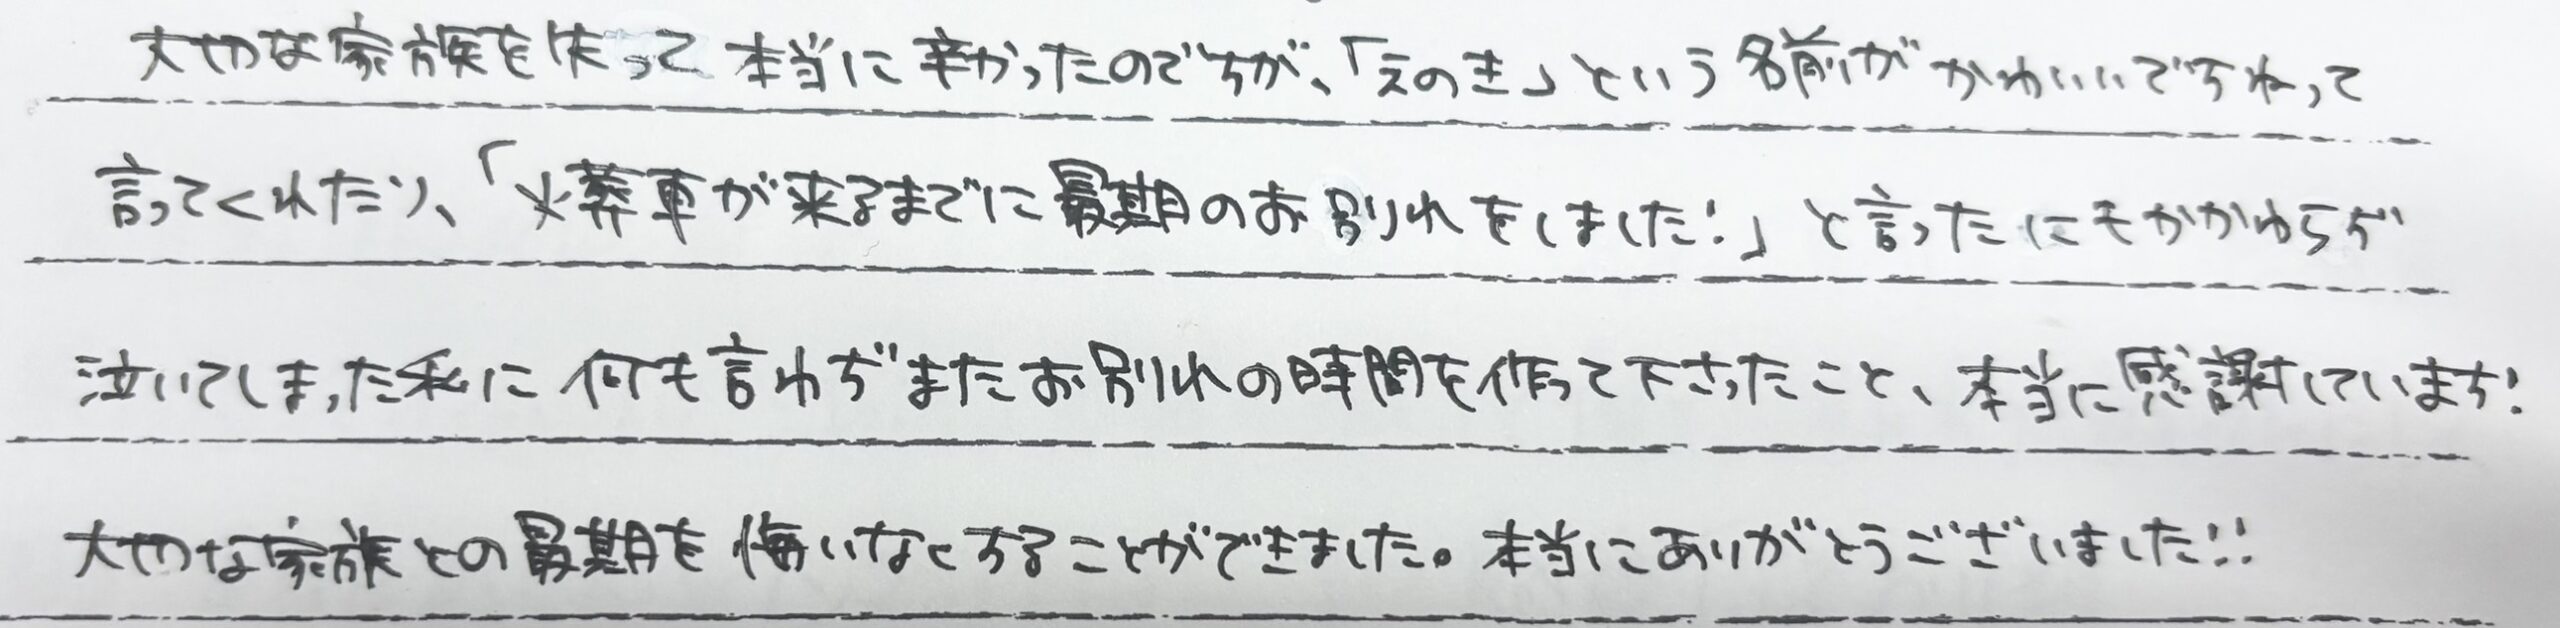 大切な家族を失って本当に辛かったのですが、「えのき」という名前がかわいいですねって
言ってくれたり、「火葬車が来るまでに最期のお別れをしました!」と言ったにもかかわらず
泣いてしまった私に何も言わずまたお別れの時間を作って下さったこと、本当に感謝しています!
大切な家族との最期を悔いなくすることができました。本当にありがとうございました!!